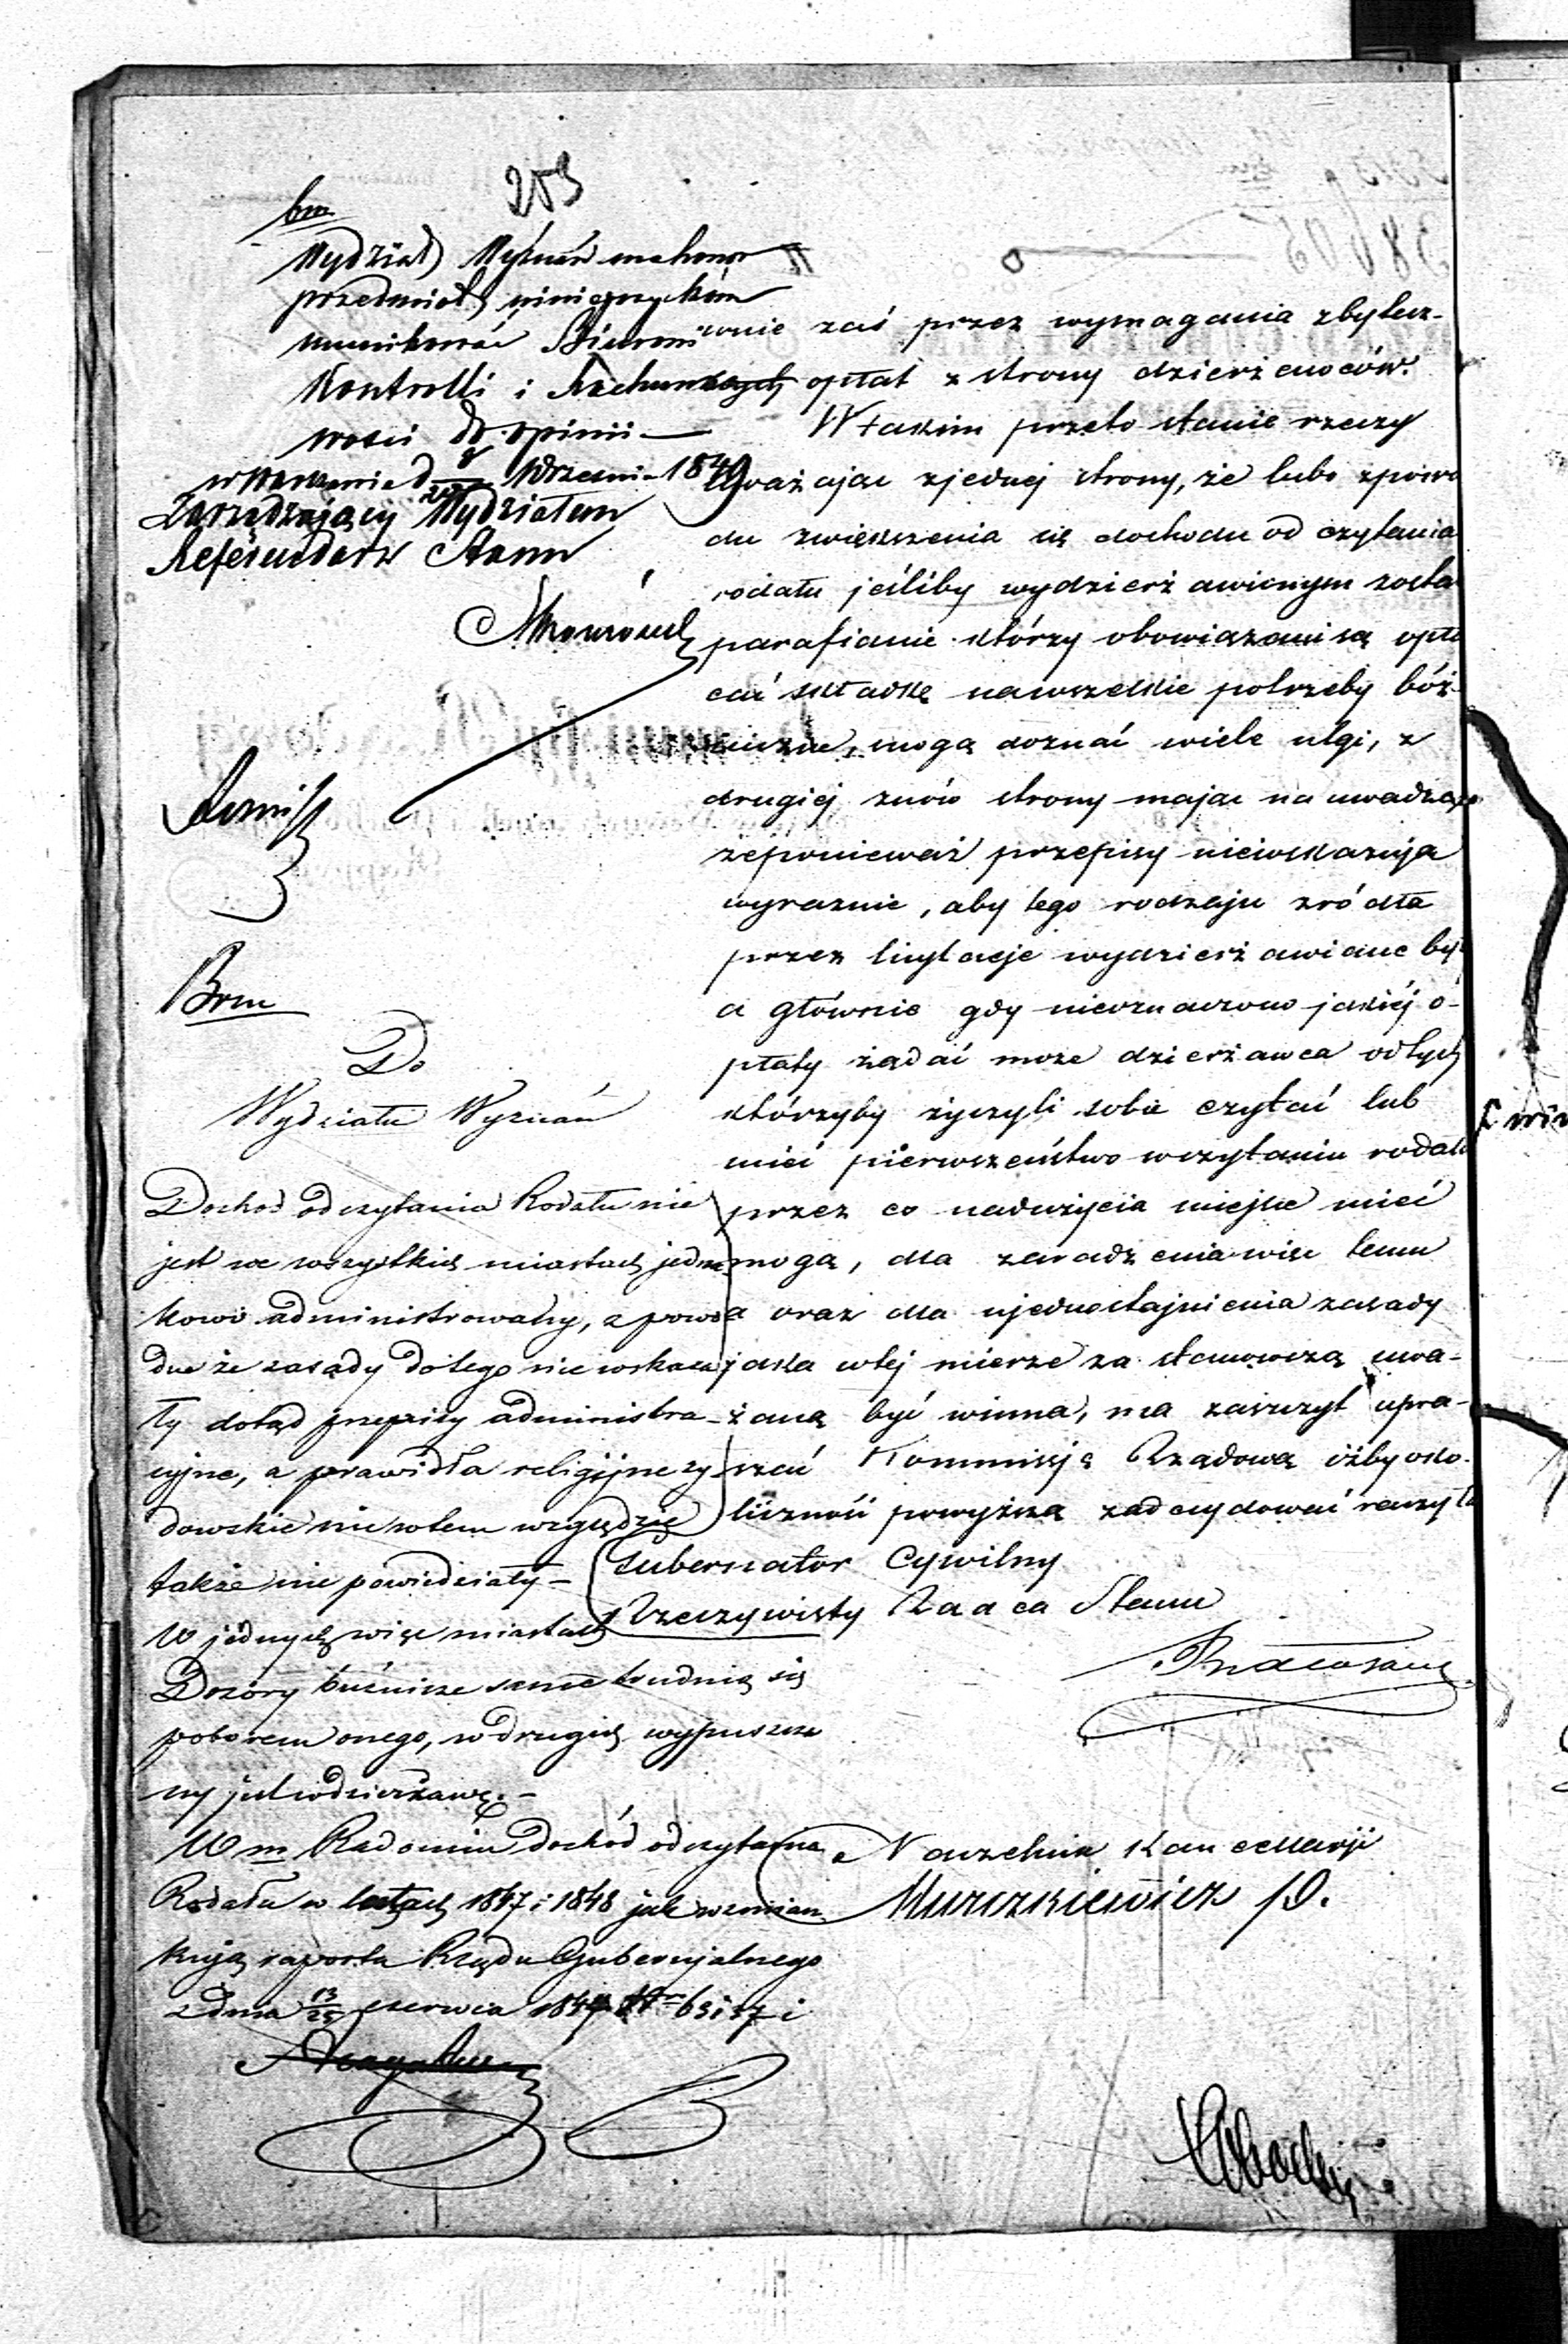 253
bm
Wydział Wyznań zechce
przedmiot niniejszy kom
munikować Biurowi
Kontrolli i Rachun
wości do opinii —
w Warszawie d Wrześni 1849
Zarządzający Wydziałem
Referendarz Stanu
Brm
Do
Wydziału Wyznań
Dochod od czytania Rodału nie
jest we wszystkich miastach jedna
kowo administrowany, z powo
du że zasady do tego nie wskaza
ły dotąd przepisy administra-
cyjne, a prawidła religijne ży
dowskie nic w tem względzie
także nie powiedziały —
W jednych więc miastach
Dozory bóżnicze same trudnią się
poborem onego, w drugich wypuszczo
ny jest w dzierżawę. —
W m Radomiu dochód od czytania
Rodału w latach 1847 i 1848 jak wzmian
kują raporta Rządu Gubernijalnego
z dnia 13/25 czerwca 1849
wnie zaś przez wymagania zbytecz-
opłat z strony dzierżawców.
W takim przeto stanie rzeczy
uważając z jednej strony, że lubo z powo
du zwiększenia się dochodu od czytania
rodału jeśliby wydzierżawionym zosta
parafianie którzy obowiązani są opła
cać składkę na wszelkie potrzeby bóż-
nicze, mogą doznać wiele ulgi, z
drugiej znów strony mając na uwadze
że ponieważ przepisy nie wskazują
wyraźnie, aby tego rodzaju źródła
przez licytacje wydzierżawiane by
a głównie gdy nieoznaczono jakiéj o-
płaty żądać może dzierżawca od tych
którzyby życzyli sobie czytać lub
mieć pierwszeństwo w czytaniu rodału
przez co nadużycia miejsce mieć
mogą, dla zaradzenia więc temu
a oraz dla ujednostajnienia zasady
jaka w tej mierze za stanowczą uwa-
żaną być winna, ma zaszczyt upra-
szać Kommisję Rządową iżby oko-
liczność powyższą zadecydować raczyła
Gubernator Cywilny
Rzeczywisty Radca Stanu
Naczelnik Kancellarji